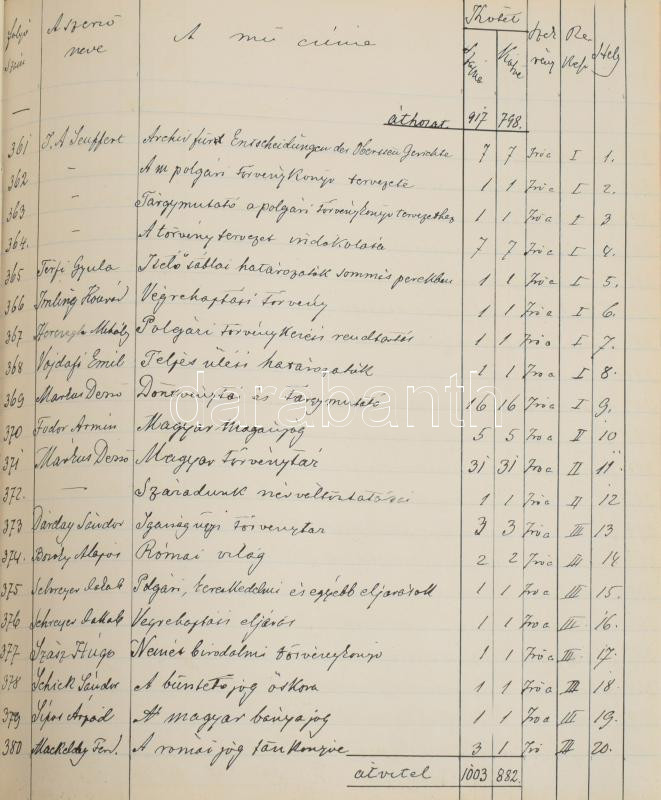 Folyó A szerző A mű címe Kötet Szekrény Rekesz Hely
szám neve Száma
áthozat 917 798.
361 J. A Seuffert Archiv für Entscheidungen der Obersten Gerichte 7 7 Iroa I 1.
362 – A m polgári törvénykönyv tervezete 1 1 Iroa I 2.
363 – Tárgymutató a polgári törvénykönyv tervezethez 1 1 Iroa I 3
364. – A törvénytervezet indokolása 7 7 Iroa I 4.
365 Térfi Gyula Itélőtáblai határozatok sommás perekben 1 1 Iroa I 5.
366 Imling Konrád Végrehajtási törvény 1 1 Iroa I 6.
367 Herczegh Mihály Polgári törvénykezési rendtartás 1 1 Iroa I 7.
368 Vajdafi Emil Teljes ülési határozatok 1 1 Iroa I 8.
369 Markus Dezső Döntvénytár és Tárgymutató 16 16 Iroa I 9.
370 Fodor Armin Magyar Magánjog 5 5 Iroa II 10
371 Márkus Dezső Magyar Törvénytár 31 31 Iroa II 11
372. – Századunk névváltoztatásai 1 1 Iroa II 12
373 Dárday Sándor Igazságügyi törvénytár 3 3 Iroa III 13
374. Bozóky Alajos Római világ 2 2 Iroa III 14
375 Schreyer Jakab Polgári, kereskedelmi és egyébb eljárások 1 1 Iroa III 15.
376 Schreyer Jakab Végrehajtási eljárás 1 1 Iroa III 16.
377 Szász Hugo Német birodalmi törvénykönyv 1 1 Iroa III 17.
378 Schick Sándor A büntető jog őskora 1 1 Iroa III 18.
379 Sipos Arpád A magyar bányajog 1 1 Iroa III 19.
380 Mackelday Ferd. A római jog tankönyve 3 1 Iro III 20.
átvitel 1003 882.
darabanth